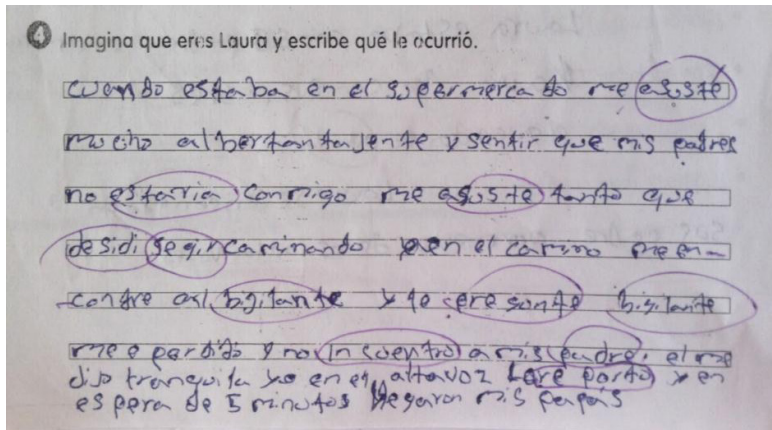 4 Imagina que eres Laura y escribe qué le ocurrió.
cuando estaba en el supermercado me asusté
mucho al ber tanta jente y sentir que mis padres
no estaria conmigo me asuste tanto que
desidi segir caminando y en el camino me en-
contre al bijilante y le
bijilante
me e perdido y no incuentro a mis padre, el me
dijo tranquila yo en el altavoz y en
espera de 5 minutos llegaron mis papás